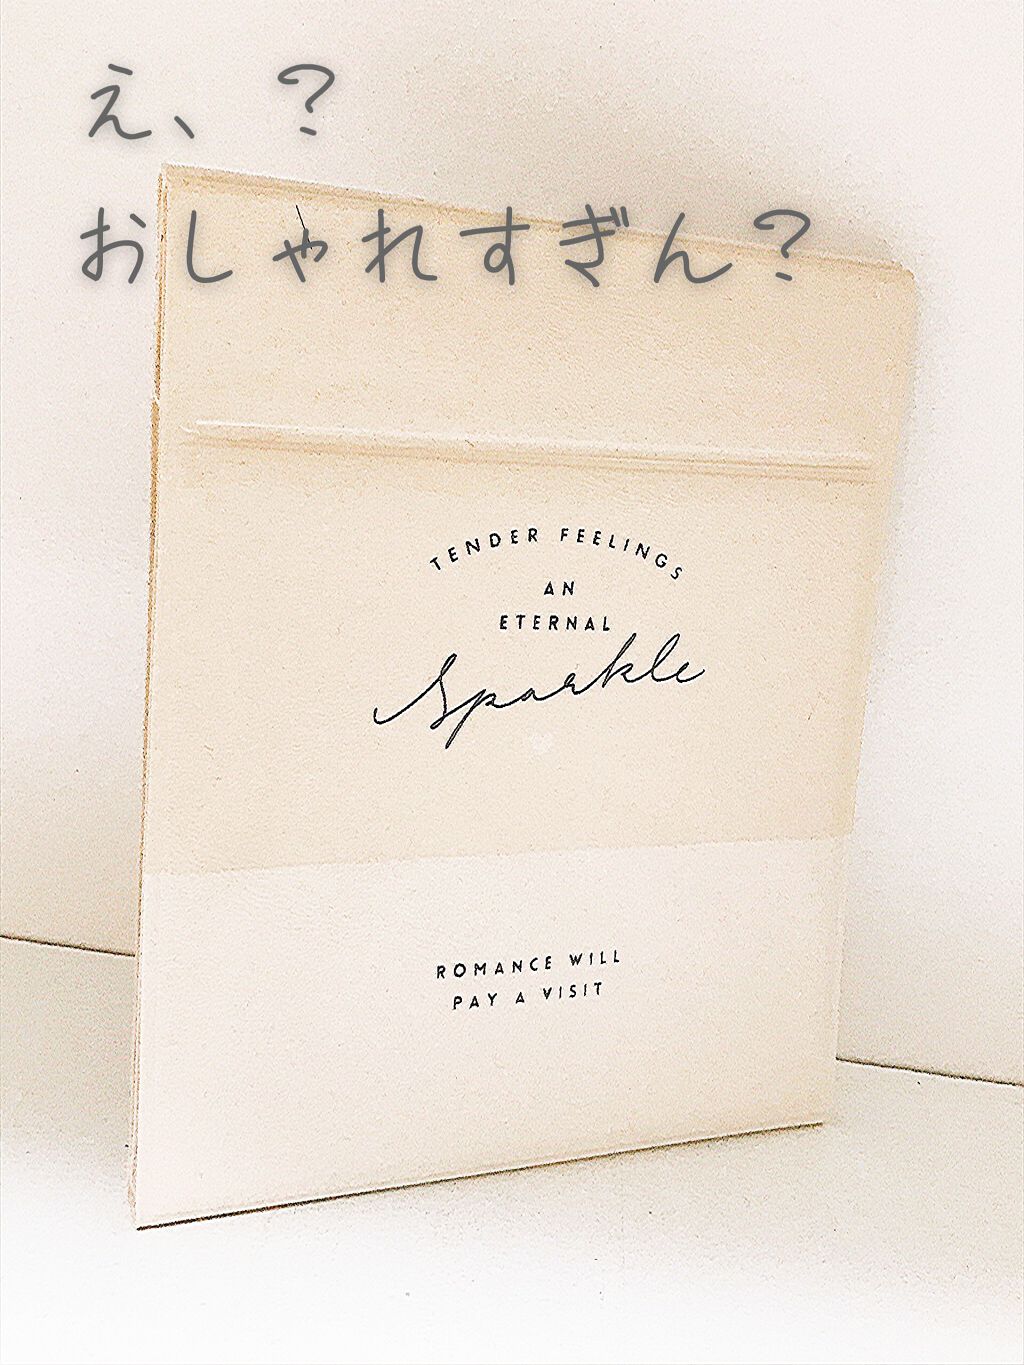 え、？
おしゃれすぎん？
TENDER FEELINGS
AN
ETERNAL
Sparkle
ROMANCE WILL
PAY A VISIT